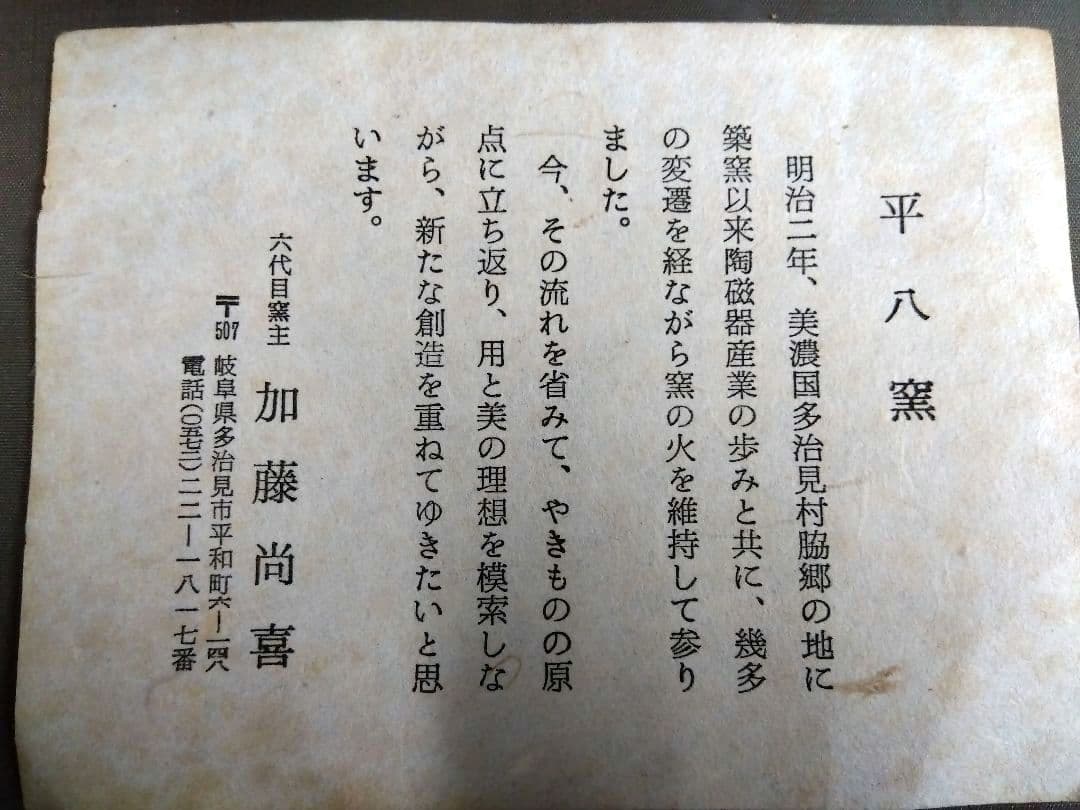 平八窯
明治二年、美濃国多治見村脇郷の地に
築窯以来陶磁器産業の歩みと共に、幾多
の変遷を経ながら窯の火を維持して参り
ました。
今、その流れを省みて、やきものの原
点に立ち返り、用と美の理想を模索しな
がら、新たな創造を重ねてゆきたいと思
います。
六代目窯主 加藤尚喜
〒507 岐阜県多治見市平和町六ー一四八
電話(〇五七二)二二ー一八一七番